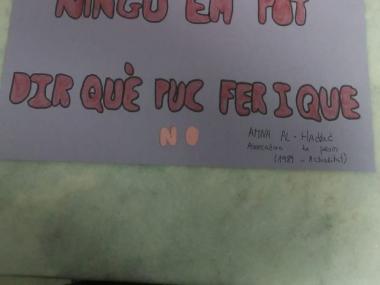 NINGÚ EM POT
DIR QUÈ PUC FER I QUE
NO
AMNA AL-Haddad
(1989 - Actualitat)